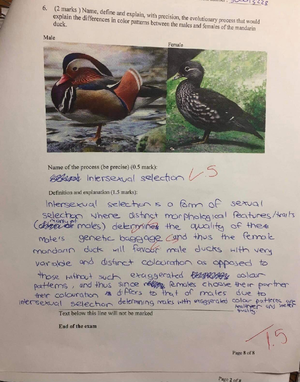 6. (2 marks) Name, define and explain, with precision, the evolutionary process that would
explain the differences in color patterns between the males and females of the mandarin
duck.
Male
Female
Name of the process (be precise) (0.5 mark):
intersexual selection .5
Definition and explanation (1.5 marks):
Intersexual selection is a form of sexual
selection where distinct morphological features/traits
males) determined the quality of these
male's genetic baggage and thus the female
mandarin duck will favour male ducks with very
variable and distinct colouration as opposed to
those without such exaggerated colour
patterns, and thus since females choose their partner
their colouration differs to that of males due to
intersexual selection determining males with exaggerated colour patterns are
healthier and better
Text below this line will not be marked
1.5
End of the exam
Page 8 of 8
Page 2 of 8